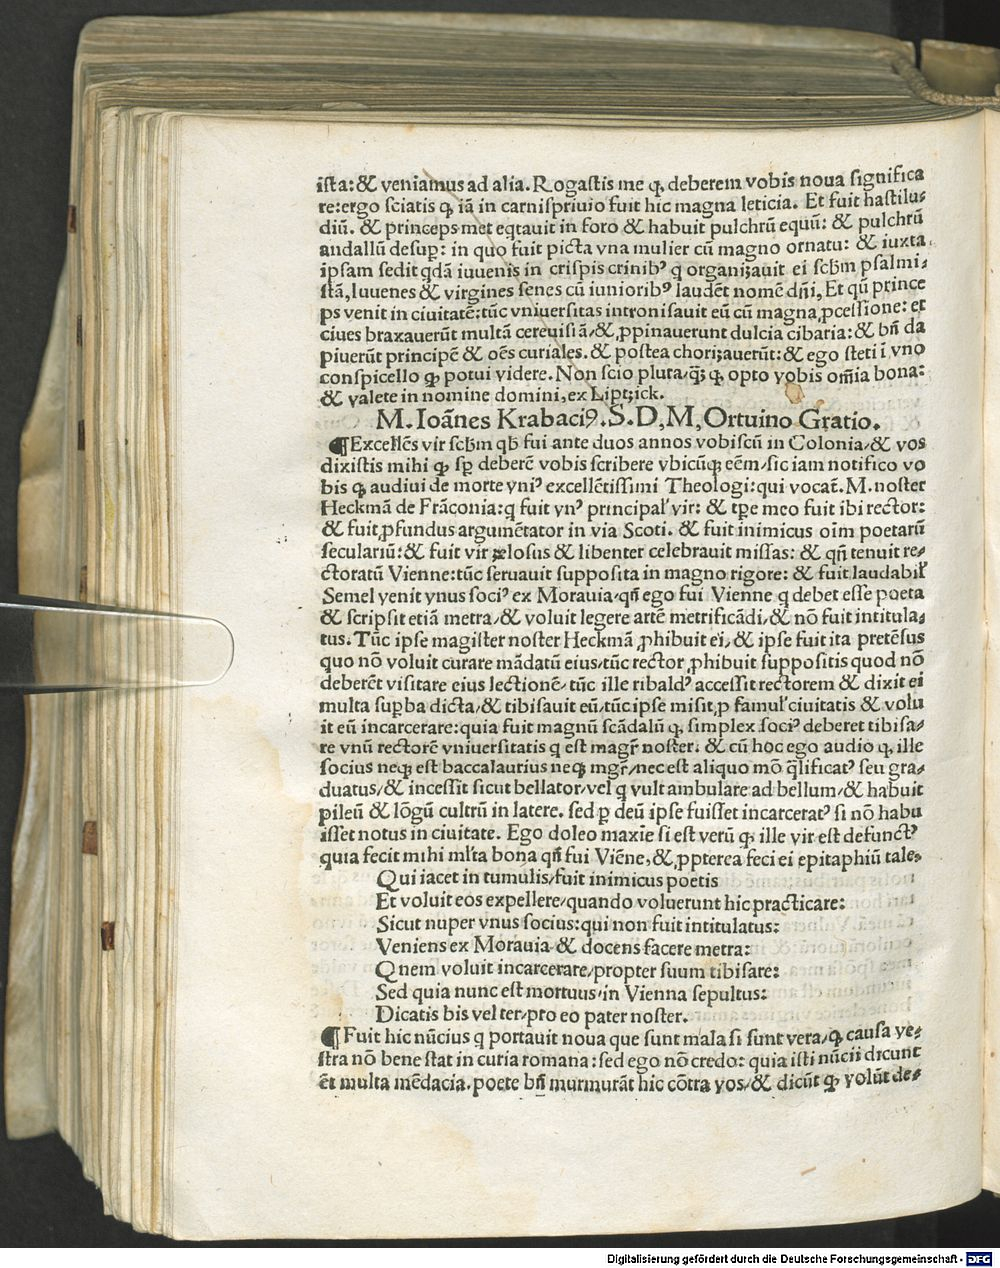 ista: & veniamus ad alia. Rogastis me ꝙ deberem vobis noua significa
re: ergo sciatis ꝙ iã in carnispriuio fuit hic magna leticia. Et fuit hastilu⸗
diũ. & princeps met eqtauit in foro & habuit pulchrũ equũ: & pulchrũ
andallũ desuꝑ: in quo fuit picta vna mulier cũ magno ornatu: & iuxta
ipsam sedit qdã iuuenis in crispis crinibꝰ q organiȝauit ei scḃm psalmi⸗
stã, Iuuenes & virgines senes cũ iunioribꝰ laudẽt nomẽ dñi, Et qũ prince
ps venit in ciuitatẽ: tũc vniuersitas intronisauit eũ cũ magna ꝓcessione: et
ciues braxauerũt multã cereuisiã/ & ꝓpinauerunt dulcia cibaria: & bñ da
piuerũt principẽ & oẽs curiales. & postea choriȝauerũt: & ego steti ĩ vno
conspicello ꝙ potui videre. Non scio plura/ qȝ ꝙ opto vobis om̃ia bona:
& valete in nomine domini, ex Liptȝick.
M. Ioãnes Krabaciꝰ. S. D, M, Ortuino Gratio.
¶Excellẽs vir scḃm qḃ fui ante duos annos vobiscũ in Colonia/ & vos
dixistis mihi ꝙ sꝑ deberẽ vobis scribere vbicũqȝ eẽm/ sic iam notifico vo
bis ꝙ audiui de morte vniꝰ excellẽtissimi Theologi: qui vocat̃. M. noster
Heckmã de Frãconia: q fuit vnꝰ principal' vir: & tꝑe meo fuit ibi rector:
& fuit ꝓfundus argumẽtator in via Scoti. & fuit inimicus oĩm poetarũ
seculariũ: & fuit vir zelosus & libenter celebrauit missas: & qñ tenuit re⸗
ctoratũ Vienne: tũc seruauit supposita in magno rigore: & fuit laudabil'
Semel venit vnus sociꝰ ex Morauia/ qñ ego fui Vienne q debet esse poeta
& scripsit etiã metra/ & voluit legere artẽ metrificãdi/ & nõ fuit intitula⸗
tus. Tũc ipse magister noster Heckmã ꝓhibuit ei/ & ipse fuit ita pretẽsus
quo nõ voluit curare mãdatũ eius/ tũc rector ꝓhibuit suppositis quod nõ
deberẽt visitare eius lectionẽ/ tũc ille ribaldꝰ accessit rectorem & dixit ei
multa suꝑba dicta/ & tibisauit eũ/ tũc ipse misit ꝓ famul' ciuitatis & volu
it eũ incarcerare: quia fuit magnũ scãdalũ ꝙ simplex sociꝰ deberet tibisa⸗
re vnũ rectorẽ vniuersitatis q est magr̃ noster. & cũ hoc ego audio ꝙ ille
socius neqȝ est baccalaurius neqȝ mgr̃/ nec est aliquo mõ q̃lificatꝰ seu gra⸗
duatus/ & incessit sicut bellator/ vel q vult ambulare ad bellum/ & habuit
pileũ & lõgũ cultrũ in latere. sed ꝑ deũ ipse fuisset incarceratꝰ si nõ habu
isset notus in ciuitate. Ego doleo maxĩe si est verũ ꝙ ille vir est defunctꝰ
quia fecit mihi ml'ta bona qñ fui Viẽne, & ꝓpterea feci ei epitaphiũ tale⸗
Qui iacet in tumulis/ fuit inimicus poetis
Et voluit eos expellere/ quando voluerunt hic practicare:
Sicut nuper vnus socius: qui non fuit intitulatus:
Veniens ex Morauia & docens facere metra:
Quem voluit incarcerare/ propter suum tibisare:
Sed quia nunc est mortuus/ in Vienna sepultus:
Dicatis bis vel ter/ pro eo pater noster.
¶Fuit hic nũcius q portauit noua que sunt mala si sunt vera/ ꝙ causa ve⸗
stra nõ bene stat in curia romana: sed ego nõ credo: quia isti nũcii dicunt
et̃ multa mẽdacia. poete bñ murmurãt hic cõtra vos/ & dicũt ꝙ volũt de⸗
Digitalisierung gefördert durch die Deutsche Forschungsgemeinschaft - DFG